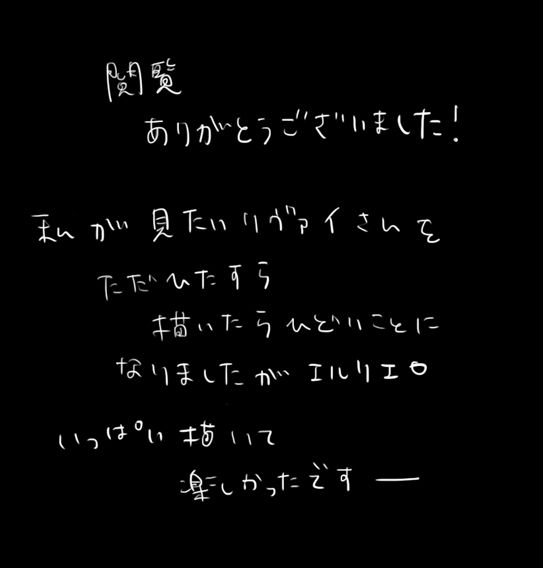 閲覧
ありがとうございました!
私が見たいリヴァイさんを
ただひたすら
描いたらひどいことに
なりましたがエルリエロ
いっぱい描いて
楽しかったですー